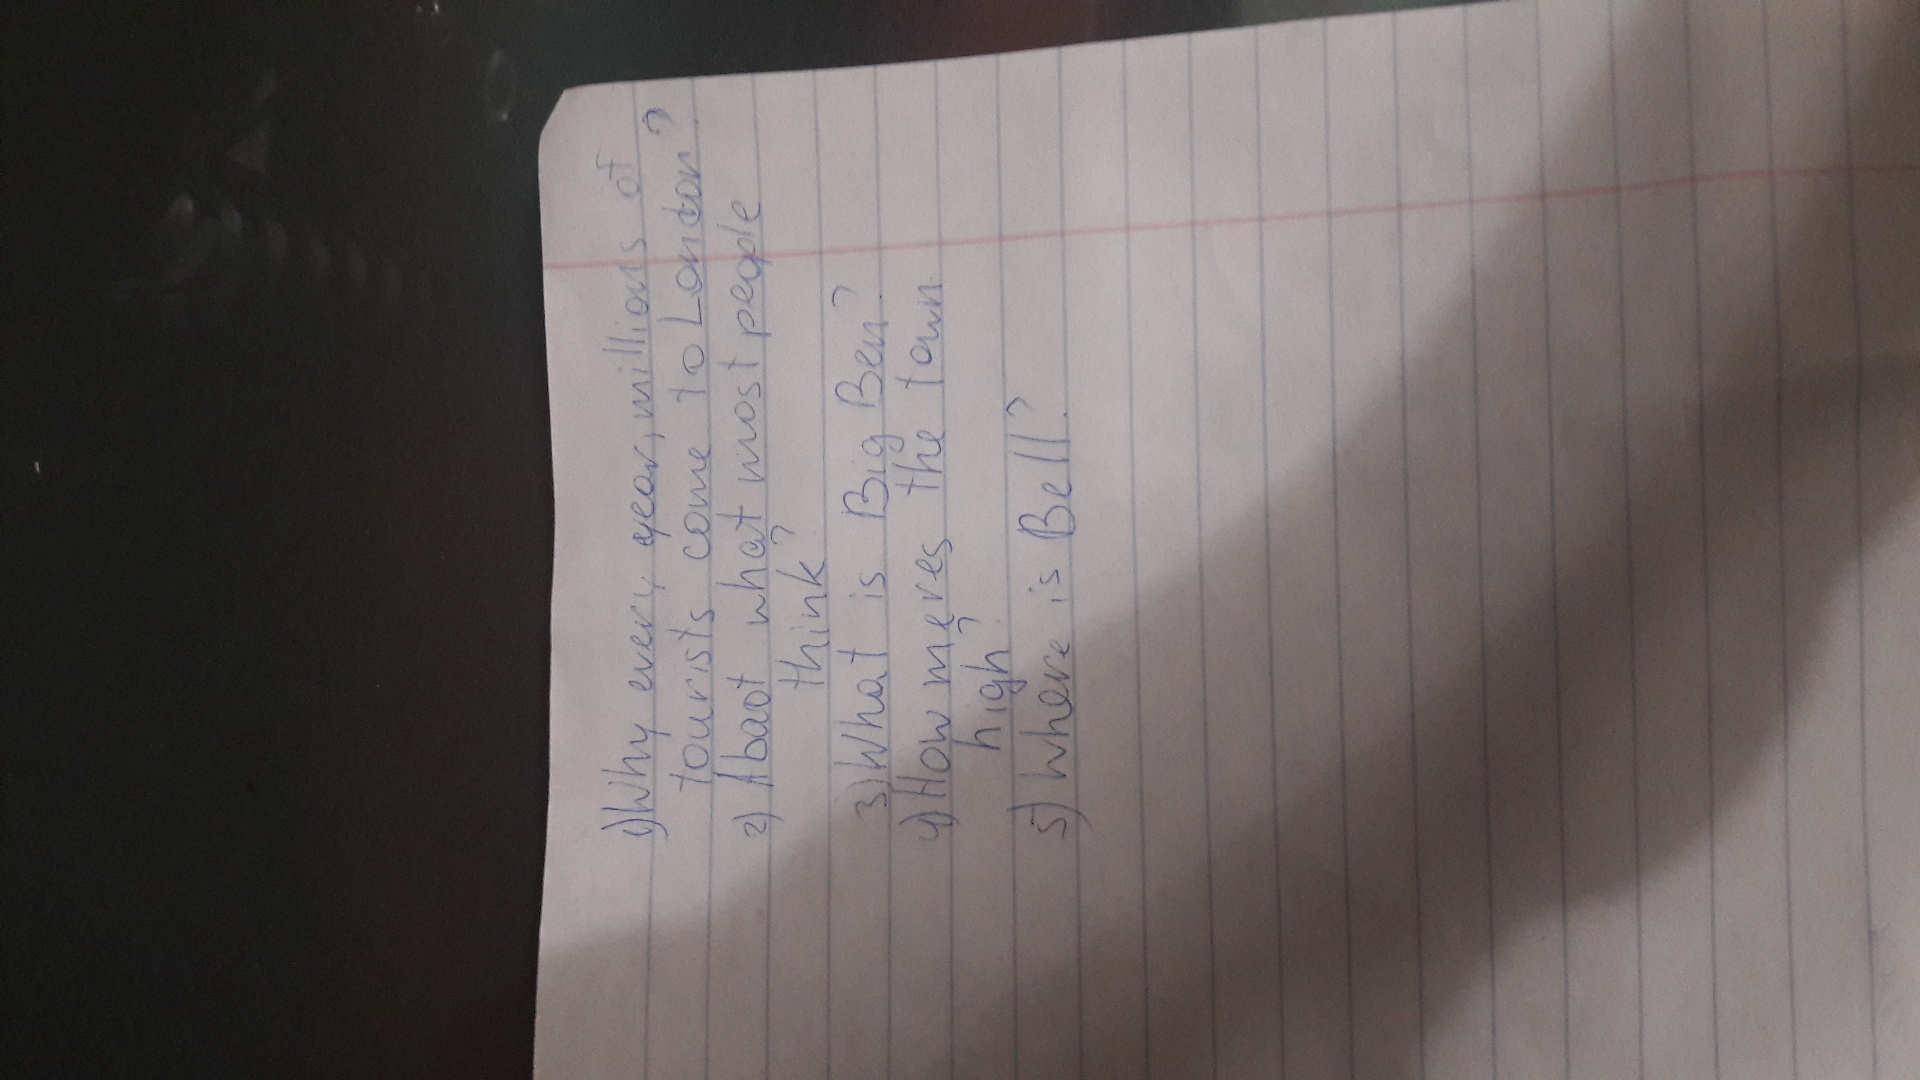 1) Why every year, millions of
tourists come to London?
2) Abaot what most people
think?
3) What is Big Ben?
4) How meres the town
high?
5) Where is Bell?